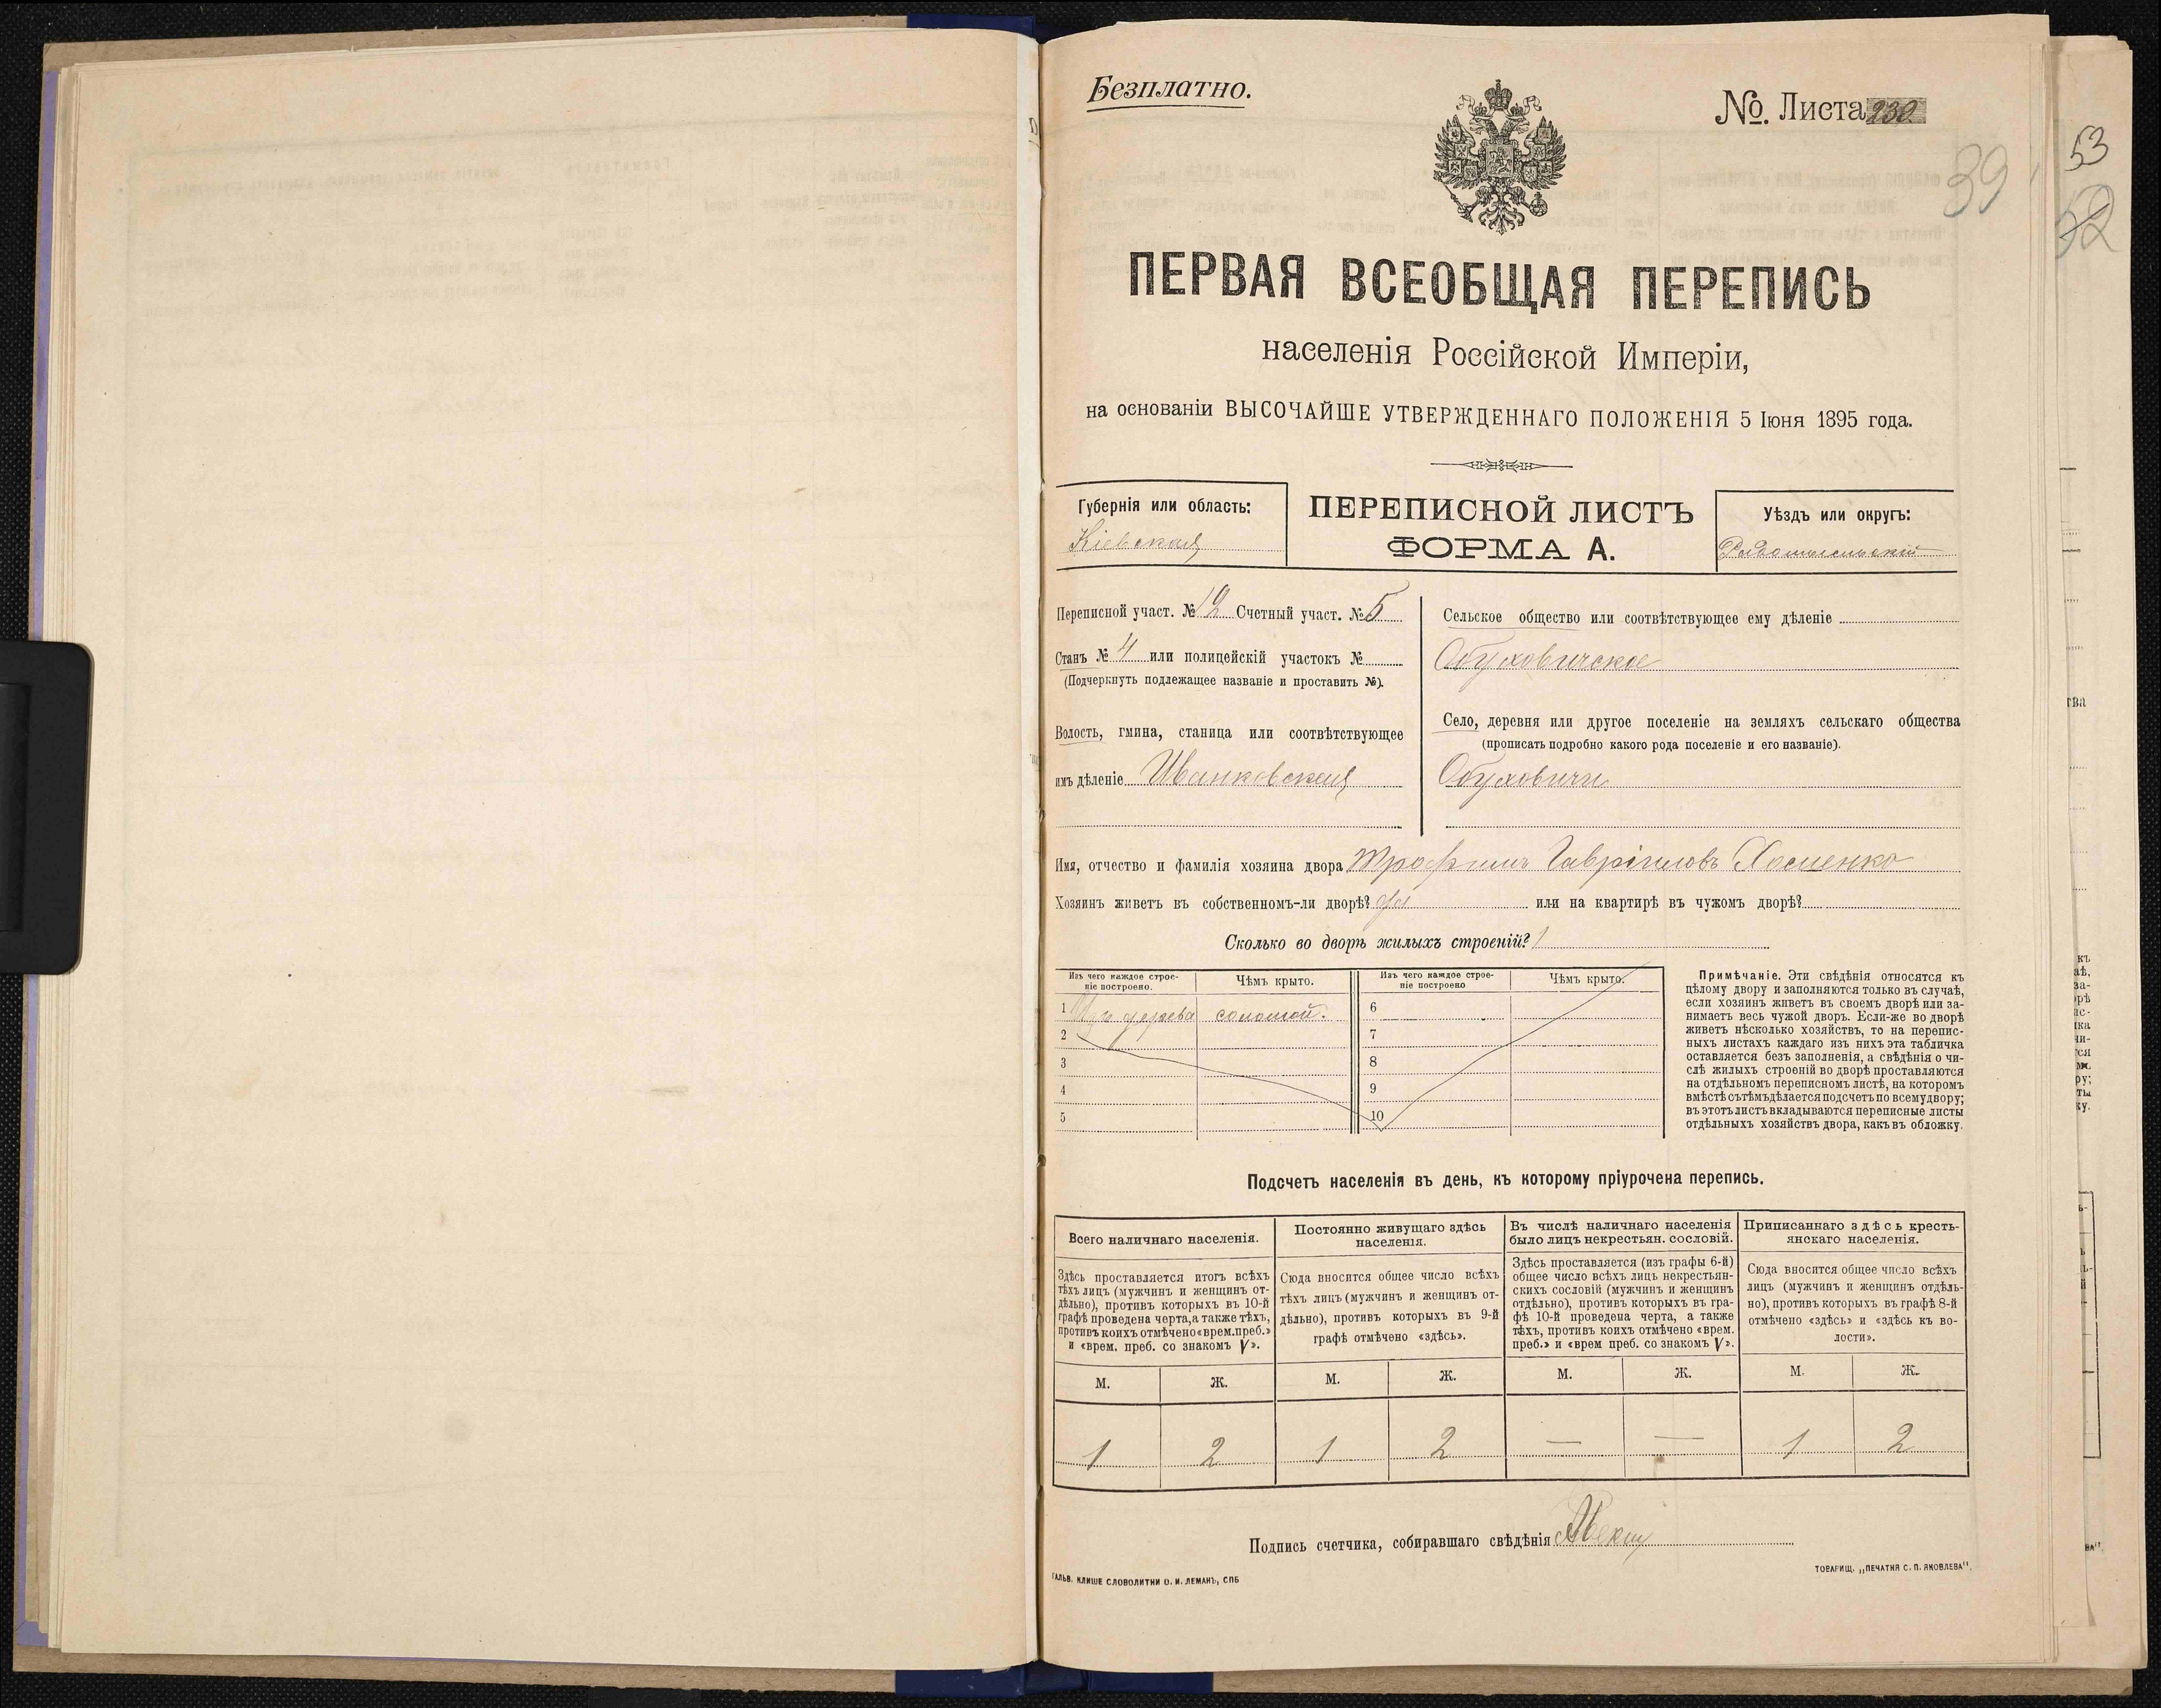 Безплатно.
№. Листа 230
39
53
52
ПЕРВАЯ ВСЕОБЩАЯ ПЕРЕПИСЬ
населенія Россійской Имперіи,
на основаніи ВЫСОЧАЙШЕ УТВЕРЖДЕННАГО ПОЛОЖЕНІЯ 5 Іюня 1895 года.
Губернія или область:
Кіевская
ПЕРЕПИСНОЙ ЛИСТЪ
ФОРМА А.
Уѣздъ или округъ:
Радомысльскій
Переписной участ. № 12 Счетный участ. № 5
Станъ № 4 или полицейскій участокъ №
(Подчеркнуть подлежащее названіе и проставить №).
Волость, гмина, станица или соотвѣтствующее
имъ дѣленіе Иванковская
Сельское общество или соотвѣтствующее ему дѣленіе
Обуховичское
Село, деревня или другое поселеніе на земляхъ сельскаго общества
(прописать подробно какого рода поселеніе и его названіе).
Обуховичи
Имя, отчество и фамилія хозяина двора Трофимъ Гавріиловъ
Хозяинъ живетъ въ собственномъ-ли дворѣ? да или на квартирѣ въ чужомъ дворѣ?
Сколько во дворѣ жилыхъ строеній? 1
Изъ чего каждое строе-
ніе построено.
Чѣмъ крыто.
Изъ чего каждое строе-
ніе построено
Чѣмъ крыто.
1 Изъ дерева соломой. 6
2 7
3 8
4 9
5 10
Примѣчаніе. Эти свѣдѣнія относятся къ
цѣлому двору и заполняются только въ случаѣ,
если хозяинъ живетъ въ своемъ дворѣ или за-
нимаетъ весь чужой дворъ. Если-же во дворѣ
живетъ нѣсколько хозяйствъ, то на перепис-
ныхъ листахъ каждаго изъ нихъ эта табличка
оставляется безъ заполненія, а свѣдѣнія о чи-
слѣ жилыхъ строеній во дворѣ проставляются
на отдѣльномъ переписномъ листѣ, на которомъ
вмѣстѣ съ тѣмъ дѣлается подсчетъ по всему двору;
въ этотъ листъ вкладываются переписные листы
отдѣльныхъ хозяйствъ двора, какъ въ обложку.
Подсчетъ населенія въ день, къ которому пріурочена перепись.
Всего наличнаго населенія.
Здѣсь проставляется итогъ всѣхъ
тѣхъ лицъ (мужчинъ и женщинъ от-
дѣльно), противъ которыхъ въ 10-й
графѣ проведена черта, а также тѣхъ,
противъ коихъ отмѣчено «врем. преб.»
и «врем. преб. со знакомъ V».
Постоянно живущаго здѣсь
населенія.
Сюда вносится общее число всѣхъ
тѣхъ лицъ (мужчинъ и женщинъ от-
дѣльно), противъ которыхъ въ 9-й
графѣ отмѣчено «здѣсь».
Въ числѣ наличнаго населенія
было лицъ некрестьян. сословій.
Здѣсь проставляется (изъ графы 6-й)
общее число всѣхъ лицъ некрестьян-
скихъ сословій (мужчинъ и женщинъ
отдѣльно), противъ которыхъ въ гра-
фѣ 10-й проведена черта, а также
тѣхъ, противъ коихъ отмѣчено «врем.
преб.» и «врем преб. со знакомъ V».
Приписаннаго здѣсь кресть-
янскаго населенія.
Сюда вносится общее число всѣхъ
лицъ (мужчинъ и женщинъ отдѣль-
но), противъ которыхъ въ графѣ 8-й
отмѣчено «здѣсь» и «здѣсь къ во-
лости».
М. Ж. М. Ж. М. Ж. М. Ж.
1 2 1 2 — — 1 2
Подпись счетчика, собиравшаго свѣдѣнія
ГАЛЬВ. КЛИШЕ СЛОВОЛИТНИ О. И. ЛЕМАНЪ, СПБ
ТОВАРИЩ. „ПЕЧАТНЯ С. П. ЯКОВЛЕВА".